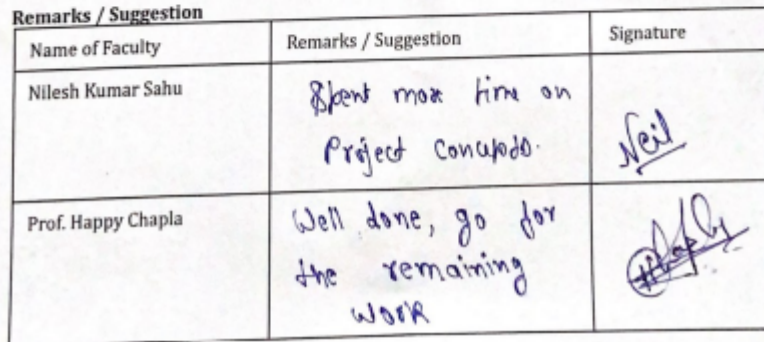 Remarks / Suggestion
Name of Faculty Remarks / Suggestion Signature
Nilesh Kumar Sahu
Spent more time on
Project concepts.
Neil
Prof. Happy Chapla
Well done, go for
the remaining
work